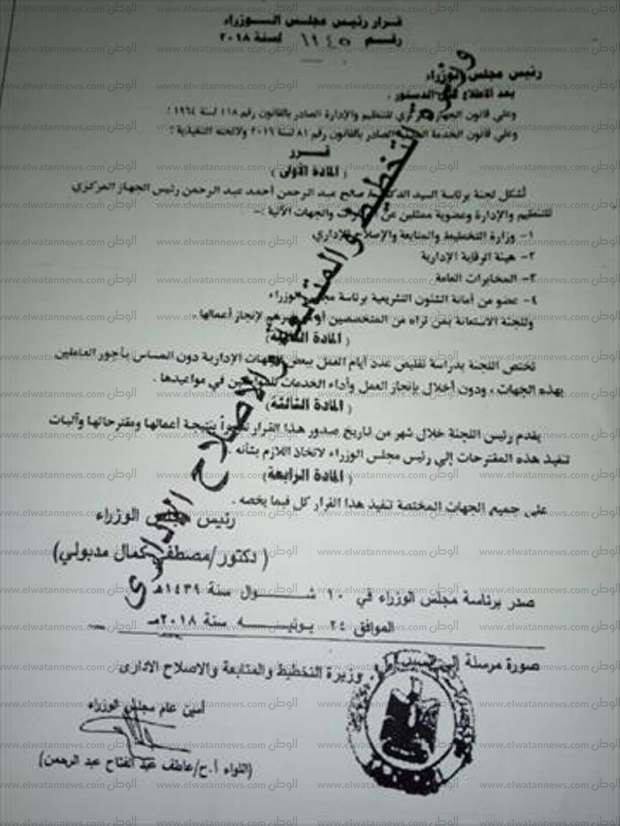 قرار رئيس مجلس الوزراء
رقم ١٢٤٥ لسنة ٢٠١٨
رئيس مجلس الوزراء
بعد الاطلاع على الدستور ،
وعلى قانون الجهاز المركزي للتنظيم والإدارة الصادر بالقانون رقم ١١٨ لسنة ١٩٦٤
وعلى قانون الخدمة المدنية الصادر بالقانون رقم ٨١ لسنة ٢٠١٦ ولائحته التنفيذية ؛
قـــرر
(المادة الأولى)
تُشكل لجنة برئاسة السيد الدكتور صالح عبد الرحمن أحمد عبد الرحمن رئيس الجهاز المركزي
للتنظيم والإدارة وعضوية ممثلين عن الوزارات والجهات الآتية :-
١- وزارة التخطيط والمتابعة والإصلاح الإداري
٢- هيئة الرقابة الإدارية
٣- المخابرات العامة
٤- عضو من أمانة الشئون التشريعية برئاسة مجلس الوزراء
وللجنة الاستعانة بمن تراه من المتخصصين أو غيرهم لإنجاز أعمالها .
(المادة الثانية)
تختص اللجنة بدراسة تقليص عدد أيام العمل ببعض الجهات الإدارية دون المساس بأجور العاملين
بهذه الجهات ، ودون أخلال بإنجاز العمل وأداء الخدمات للمواطنين في مواعيدها .
(المادة الثالثة)
يقدم رئيس اللجنة خلال شهر من تاريخ صدور هذا القرار تقريراً بنتيجة أعمالها ومقترحاتها وآليات
تنفيذ هذه المقترحات إلى رئيس مجلس الوزراء لاتخاذ اللازم بشأنه .
(المادة الرابعة)
على جميع الجهات المختصة تنفيذ هذا القرار كل فيما يخصه .
رئيس مجلس الوزراء
(دكتور/مصطفى كمال مدبولي)
صدر برئاسة مجلس الوزراء في ١٠ شـــوال سنة ١٤٣٩هـ
الموافق ٢٤ يونيـــه سنة ٢٠١٨مـ
صورة مرسلة إلى السيد
وزيرة التخطيط والمتابعة والاصلاح الادارى
أمين عام مجلس الوزراء
(اللواء أ.ح/عاطف عبد الفتاح عبد الرحمن)
وزارة التخطيط والمتابعة والاصلاح الادارى
الوطن www.elwatannews.com